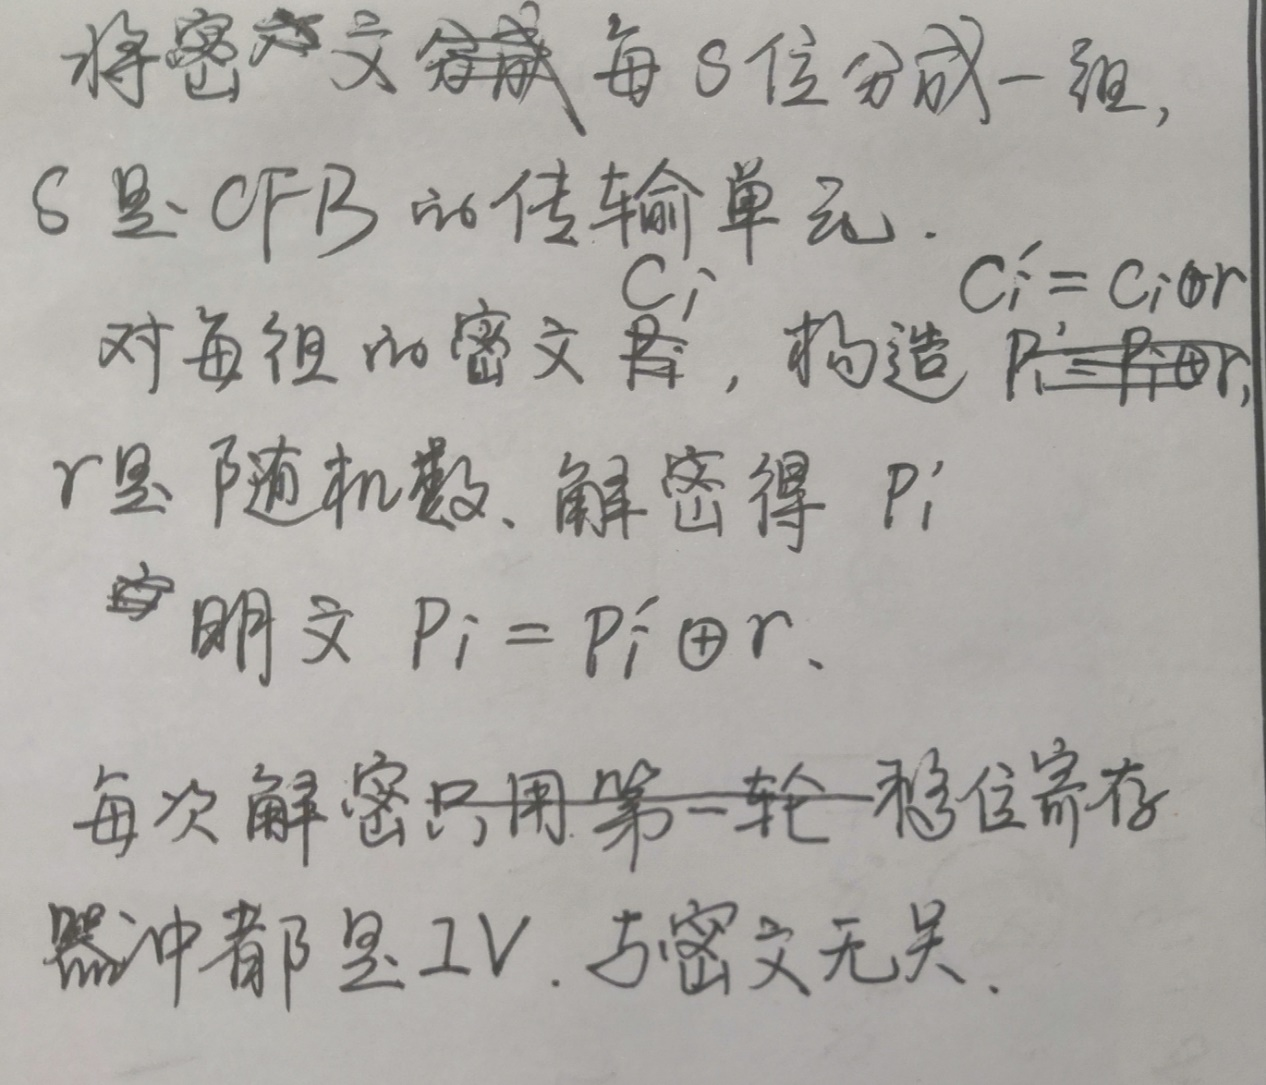 将密文每s位分成一组,
s是CFB的传输单元.
对每组的密文Ci,构造Ci'=Ci⊕r
r是随机数、解密得Pi'
明文Pi=Pi'⊕r、
每次解密移位寄存
器冲都是IV.与密文无关.